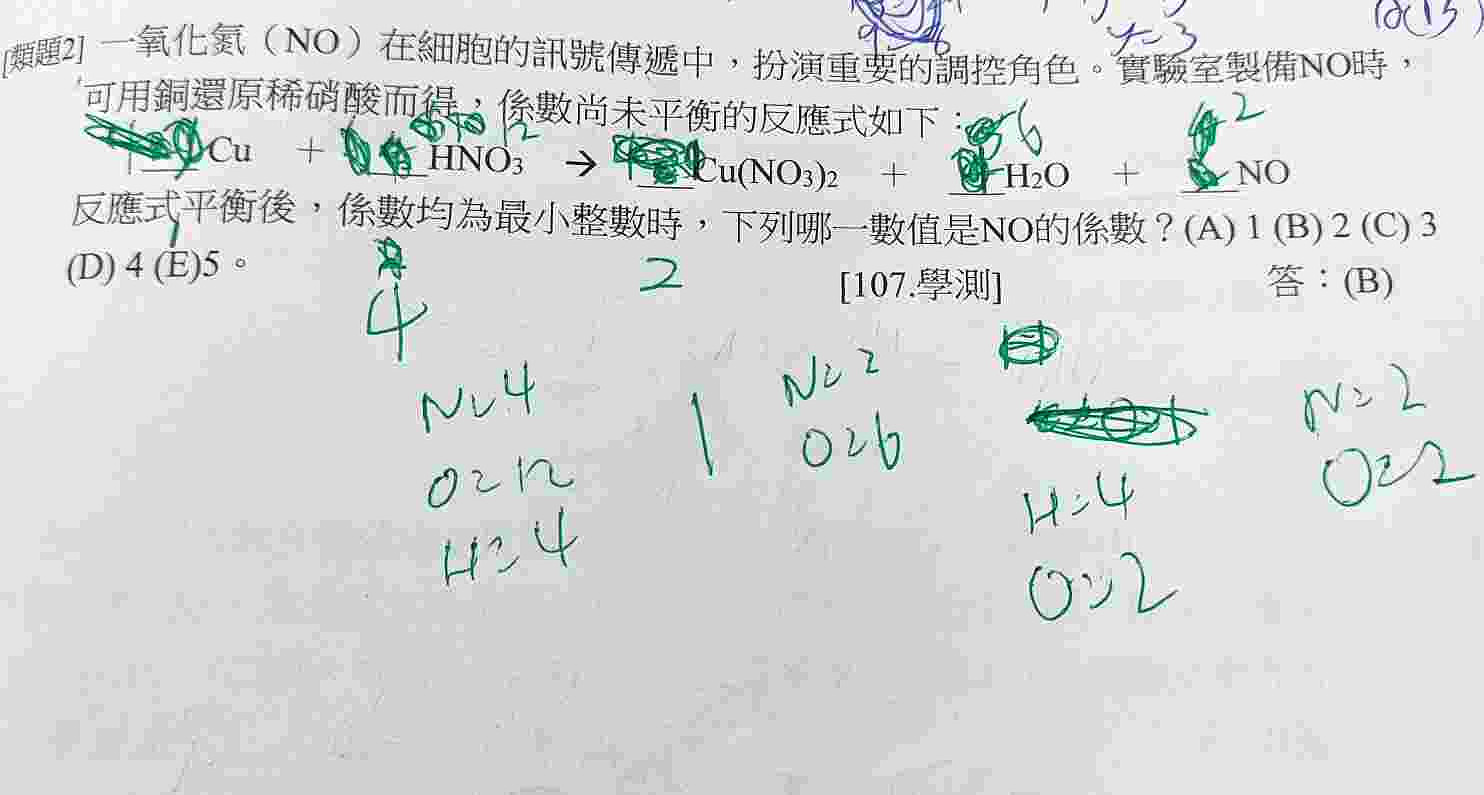 y=3
[類題2] 一氧化氮（NO）在細胞的訊號傳遞中，扮演重要的調控角色。實驗室製備NO時，
可用銅還原稀硝酸而得，係數尚未平衡的反應式如下：
12 6 2
___Cu + ___HNO₃ → ___Cu(NO₃)₂ + ___H₂O + ___NO
反應式平衡後，係數均為最小整數時，下列哪一數值是NO的係數？(A) 1 (B) 2 (C) 3
(D) 4 (E)5。 [107.學測] 答：(B)
1 4 2
N=4 1 N=2 N=2
O=12 O=6 O=2
H=4 H=4
O=2